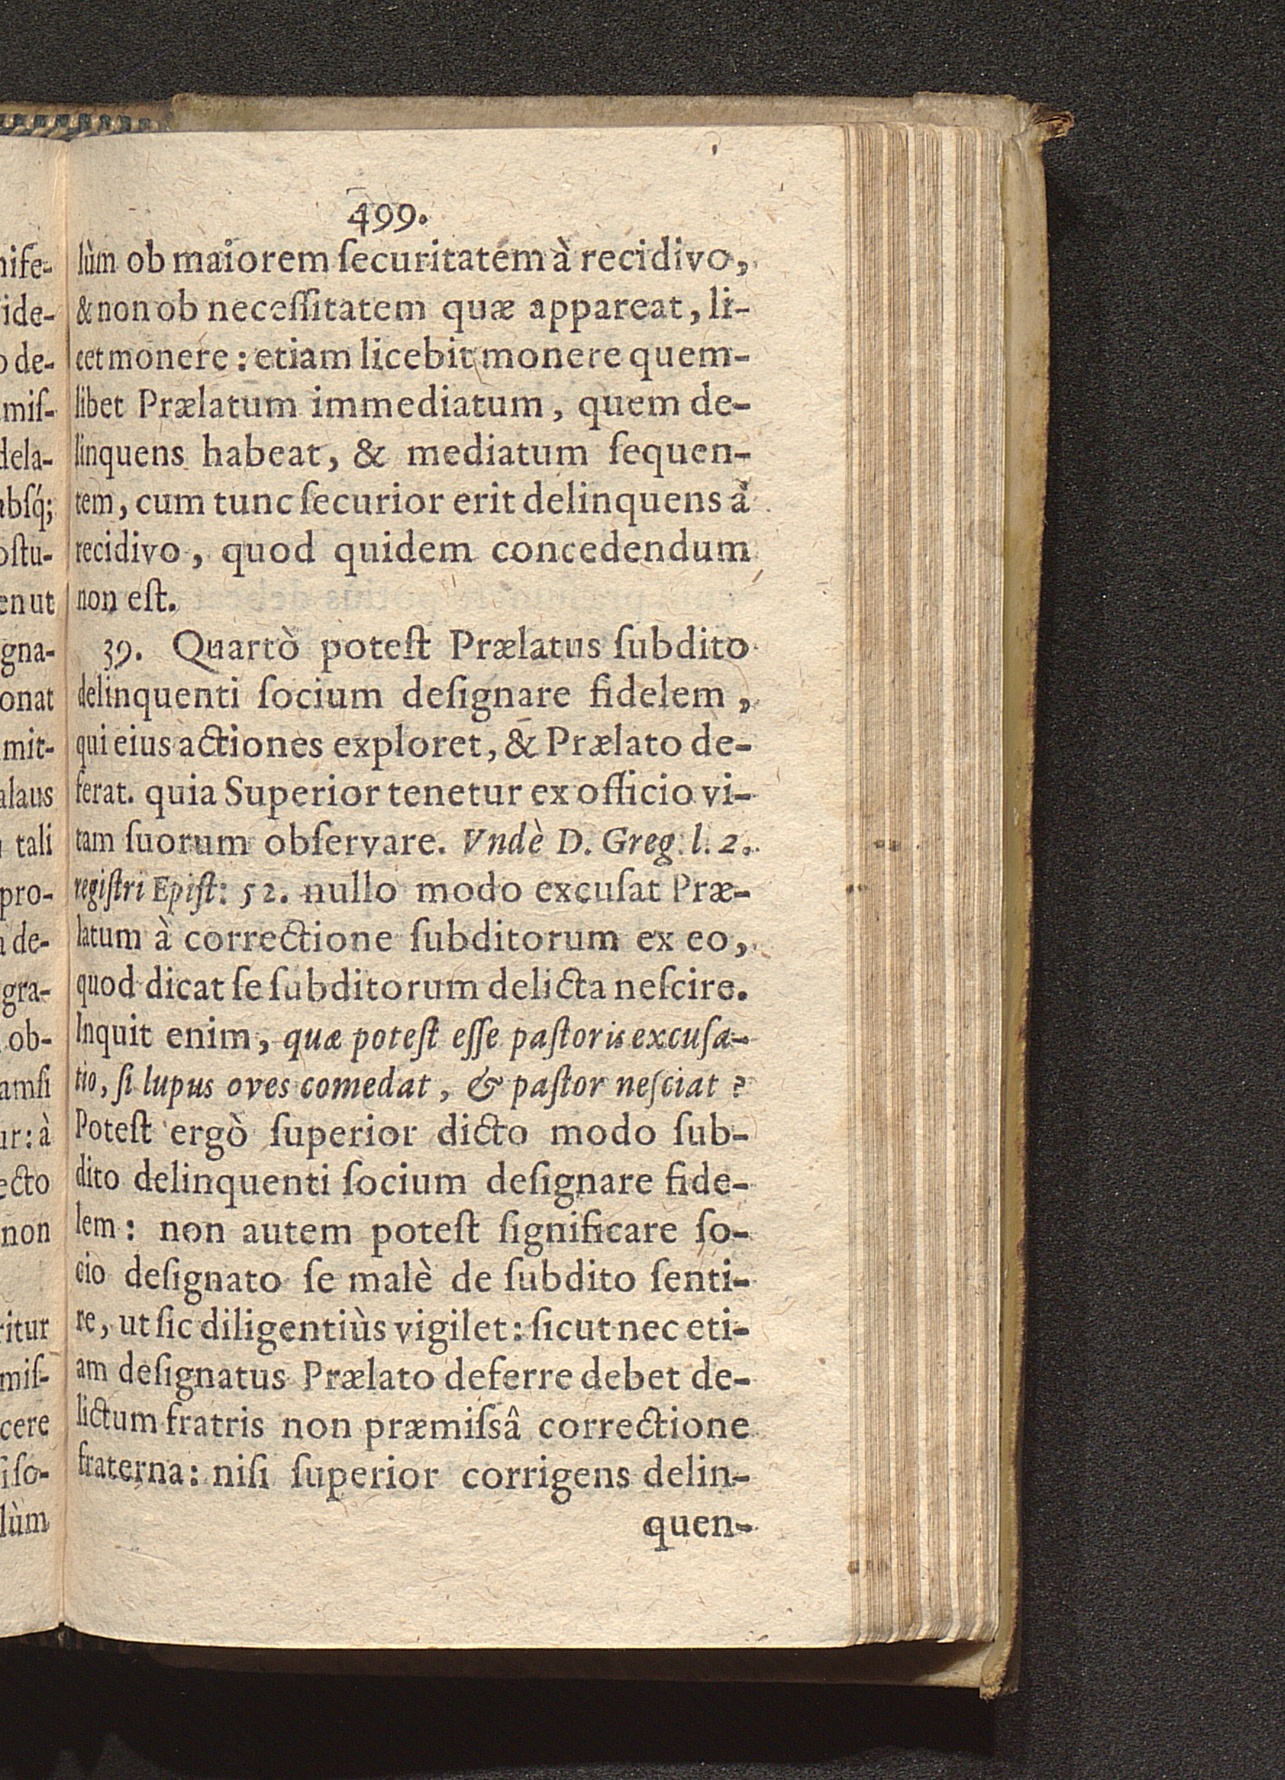 499.
lùm ob maiorem ſecuritatem à recidivo,
& non ob neceſſitatem quæ appareat, li-
cet monere: etiam licebit monere quem-
libet Prælatum immediatum, quem de-
linquens habeat, & mediatum ſequen-
tem, cum tunc ſecurior erit delinquens à
recidivo, quod quidem concedendum
non eſt.
39. Quartò poteſt Prælatus ſubdito
delinquenti ſocium deſignare fidelem,
qui eius actiones exploret, & Prælato de-
ferat. quia Superior tenetur ex officio vi-
tam ſuorum obſervare. Vndè D. Greg. l. 2.
regiſtri Epiſt: 52. nullo modo excuſat Præ-
latum à correctione ſubditorum ex eo,
quod dicat ſe ſubditorum delicta neſcire.
Inquit enim, quæ poteſt eſſe paſtoris excuſa-
tio, ſi lupus oves comedat, & paſtor neſciat?
Poteſt ergò ſuperior dicto modo ſub-
dito delinquenti ſocium deſignare fide-
lem: non autem poteſt ſignificare ſo-
cio deſignato ſe malè de ſubdito ſenti-
re, ut ſic diligentiùs vigilet: ſicut nec eti-
am deſignatus Prælato deferre debet de-
lictum fratris non præmiſsâ correctione
fraterna: niſi ſuperior corrigens delin-
quen-